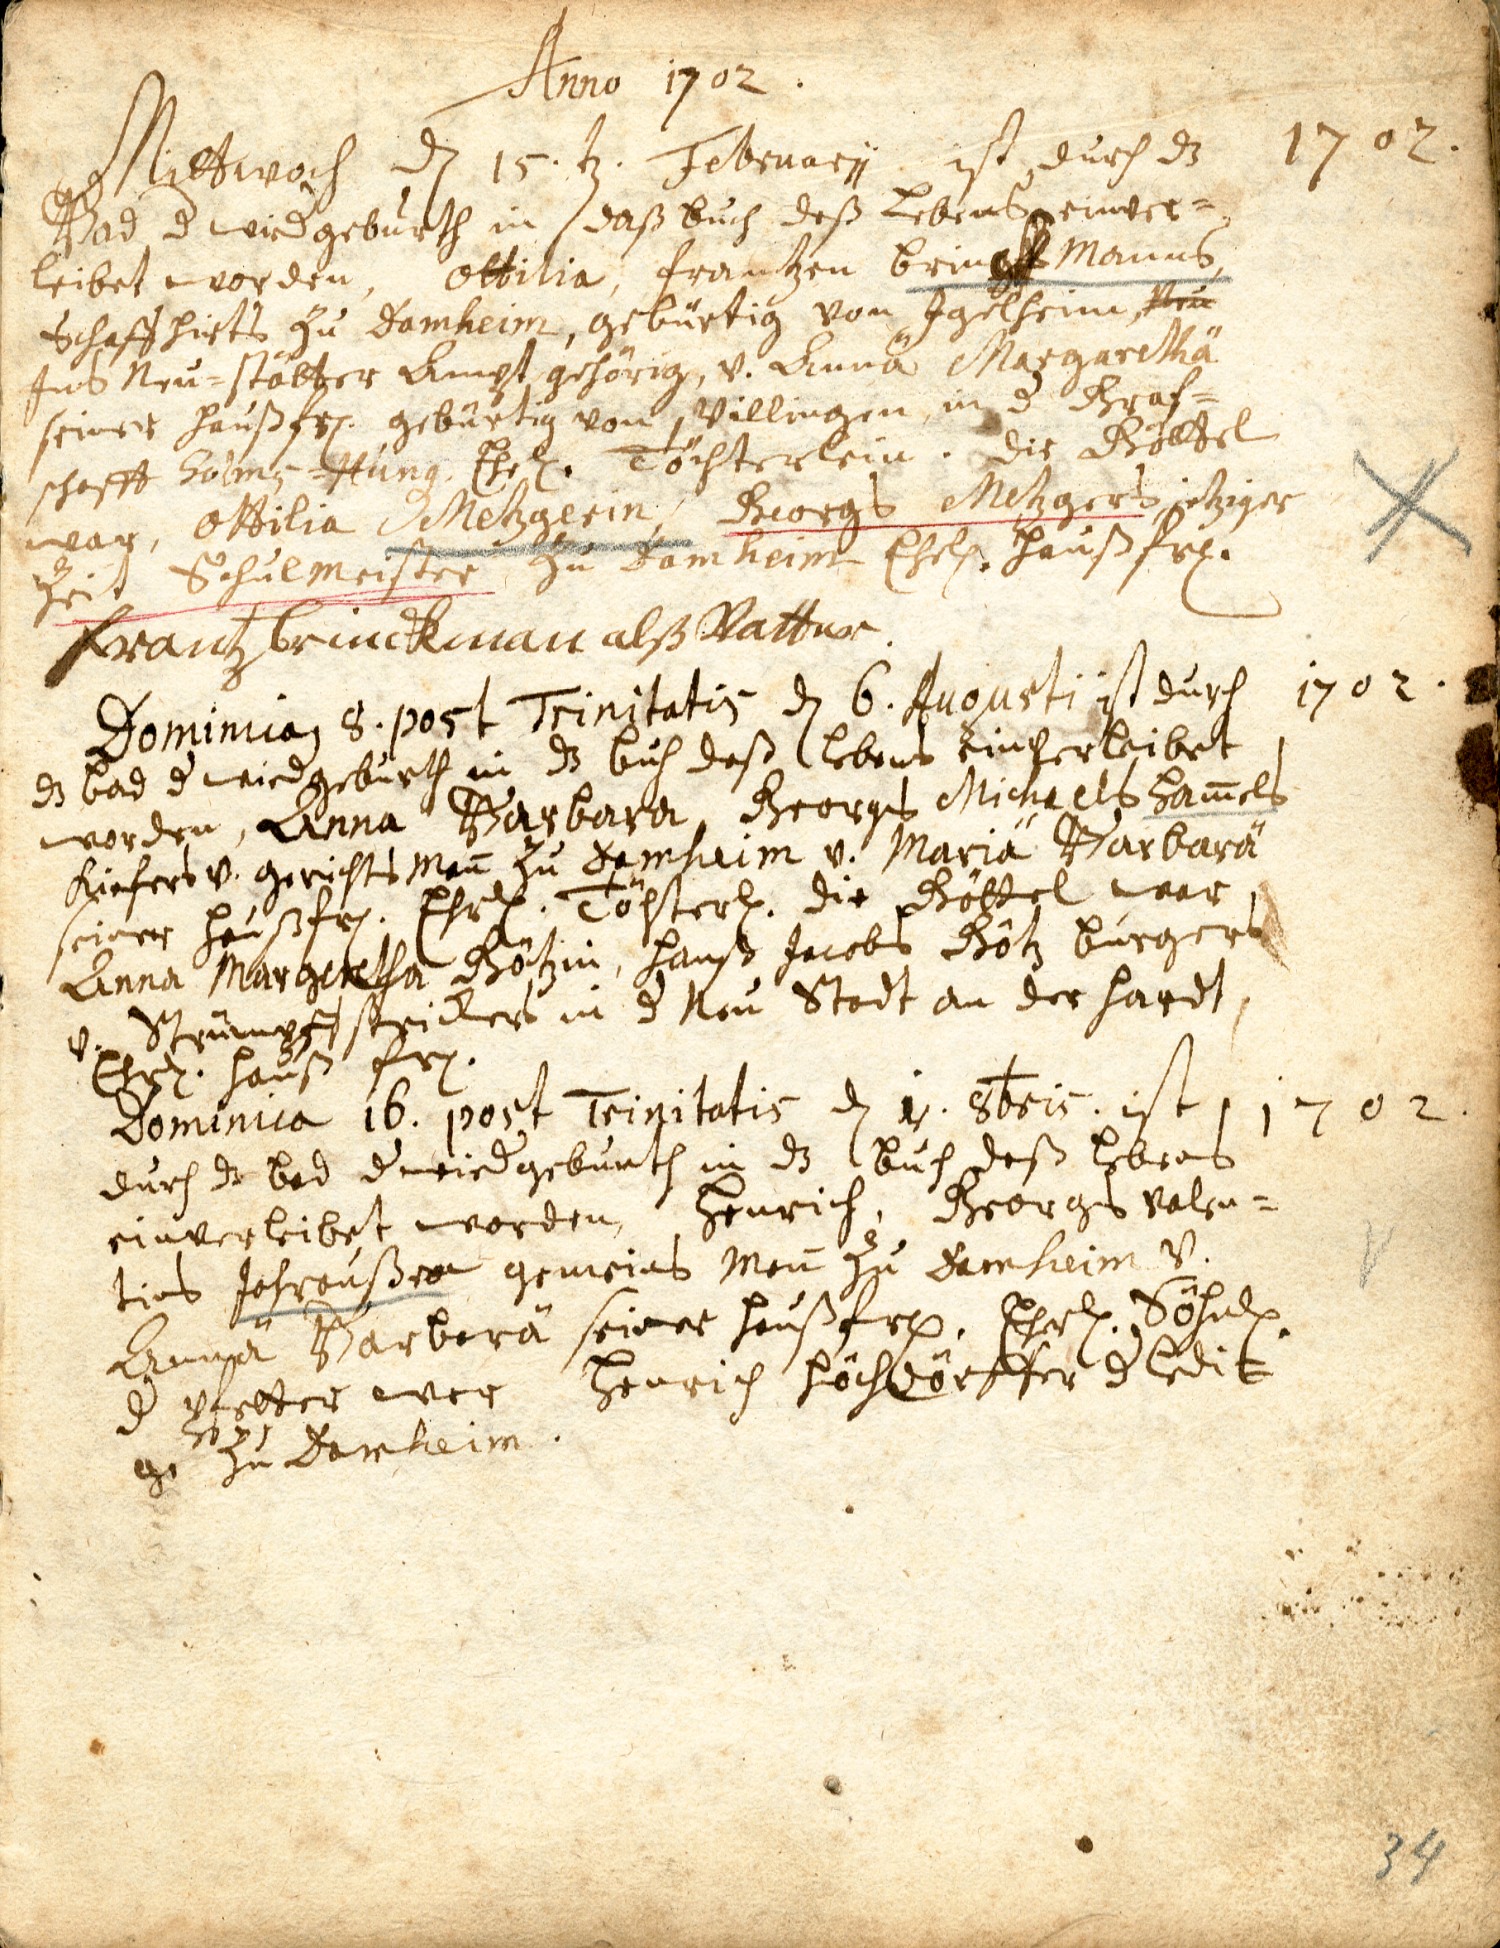 Anno 1702.
Mittwoch dẽ 15. tz. Februarij ist durch dz 1702.
Bad d wiedgeburth in daß buch deß Lebens einver=
leibet worden, Ottilia, Frantzen bring Manns,
Schaffhirts zu Damheim, gebürtig von Igelheim,
Ins Neu=stätter Ampt gehörig, v. Annä Margarethä
seiner haußfr. gebürtig von Villingen in d Graf=
schafft Ehel. Töchterlein. die Göttel
war, Ottilia Metzgerin, Georgs Metzgers, jetziger
Zeit Schulmeister zu Damheim Ehel. haußfr.
Frantz brinckman alß Vatter.
Dominica 8. post Trinitatis dẽ 6. Augusti ist durch 1702.
dz bad d wiedgeburth in dz buch deß lebens einverleibet
worden, Anna Barbara, Georg Michaels ham̄els
Kiefers v. gerichts Man̄ zu Damheim v. Mariä Barbarä
seiner haußfr. Ehel. Töchterl. die Göttel war
Anna Margaretha Götzin, hanß Jacobs Götz burgers
v. Strümpfstrickers in d Neu Stadt an der hardt,
Ehel. hauß fr.
Dominica 16. post Trinitatis dẽ 1. 8bris. ist 1702.
durch dz bad d wiedgeburth in dz buch deß Lebens
einverleibet worden, Henrich, Georgs Valen=
tins Jahraußen gemeins Man̄ zu Damheim v.
Annä Barbarä seiner haußfr. Ehel. Söhnl.
d pfetter war Henrich höchdörffer d ledi=
ge zu Damheim.
34